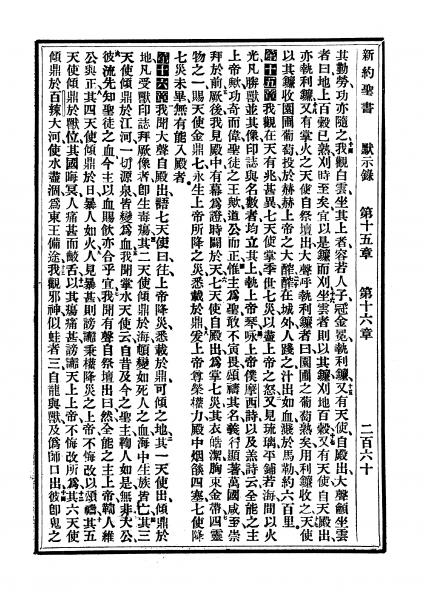 新約聖書 默示錄 第十五章 第十六章 二百六十
其勤勞功亦隨之、我觀白雲坐其上者、容若人子、冠金冕、執利鐮、又有天使自殿出、大聲籲坐雲
者曰、地上百穀已熟、刈時至矣、宜以是鐮而刈、坐雲者則以其鐮刈地百穀、又有天使自天殿出、
亦執利鐮、又有掌火之天使、自祭壇出、大聲呼執利鐮者曰、園圃之葡萄熟矣、用利鐮收之、天使
以其鐮收園圃葡萄、投於赫赫上帝之大醡、醡在城外、人踐之、汁出如血、濺於馬勒、約六百里、
第十五章 我觀在天有兆甚異、七天使掌季世七災、以盡上帝之怒、又見琉璃平鋪、若海間以火
光、凡勝獸並其像印誌、與名數者、均立其上、執上帝琴、咏上帝僕摩西詩、以及羔詩云、全能之主
上帝歟、功奇而偉、聖徒之王歟、道公而正、惟主爲聖、敢不寅畏頌禱、其名義行顯著、萬國咸至崇
拜於前、厥後我見殿中有幕、爲證時闢於天、七天使自殿出、爲掌七災、其衣皓潔、胸束金帶、四靈
物之一、賜天使金鼎七、永生上帝所降之災、悉載於鼎、爰上帝尊榮權力、殿中烟燄四塞、七使降
七災未畢、無有能入殿者、
第十六章 我聞大聲自殿出、語七天使曰、往、上帝降災、悉載於鼎、可傾之地、其一天使出、傾鼎於
地、凡受獸印誌、拜厥像者、卽生毒瘍、其二天使傾鼎於海、頓變如死人之血、海中生族皆亡、其三
天使傾鼎於江河、一切源泉皆變爲血、我聞掌水天使云、自昔及今之聖主、鞫人如是、無非大公、
彼流先知聖徒之血、今主以血賜飲、亦合乎宜、我聞有聲自祭壇出曰、然、全能之主上帝鞫人、維
公與正、其四天使傾鼎於日、暴人如火、人見暴甚、則謗讟秉權降災之上帝、不悔改以頌禱、其五
天使傾鼎於獸位、其國晦冥、人痛甚而齩舌、以其瘍痛甚、謗讟天上上帝、不悔改所爲、其六天使
傾鼎於百辣大河、使水盡涸、爲東王備途、我觀邪神似蛙者三、自龍與獸及僞師口出、彼卽鬼之